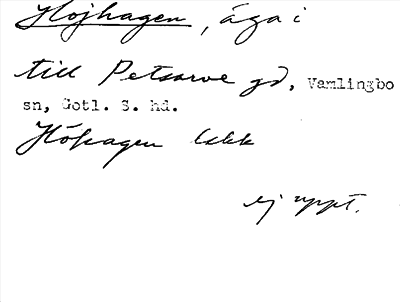 Hojhagen, äga i
till Petsarve gd, Vamlingbo
sn, Gotl. S. hd.
Höhagen
ej uppt.